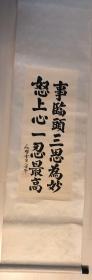 事臨頭三思為妙
怒上心一忍最高